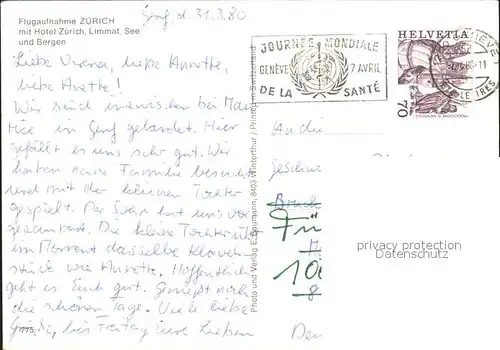 Flugaufnahme ZÜRICH
mit Hotel Zürich, Limmat, See
und Bergen
Genf, d. 31.3.80
Liebe Verena, liebe Annette,
liebe Anette!
Wir sind inzwischen bei Mau-
rice in Genf gelandet. Hier
gefällt es uns sehr gut. Wir
haben seine Familie besucht
und mit der kleinen Tochter
gespielt. Der Sohn hat uns vor-
gesummt. Die kleine Tochter übt
im Moment dasselbe Klavier-
stück wie Annette. Hoffentlich
geht es Euch gut. Genießt noch
die schönen Tage. Viele liebe
bis Freitag Eure Lieben
Photo und Verlag E. Baumann, 8403 Winterthur / Printed in Switzerland
JOURNÉE MONDIALE
GENÈVE 7 AVRIL
DE LA SANTÉ
HELVETIA
70
An die
Geschw
Bruck
Fü
10
8
privacy protection
Datenschutz
Den